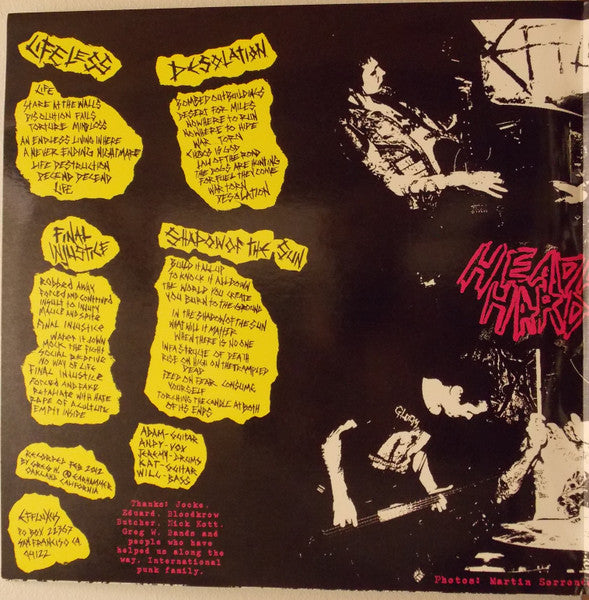 LIFELESS
LIFE
STARE AT THE WALLS
DISOLUTION FAILS
TORTURE MINDLESS
AN ENDLESS LIVING WHERE
A NEVER ENDING NIGHTMARE
LIFE DESTRUCTION
DECEND DECEND
LIFE
DESOLATION
BOMBED OUT BUILDINGS
DESERT FOR MILES
NOWHERE TO RUN
NOWHERE TO HIDE
WAR TORN
CHAOS IS GOD
LAW OF THE ROAD
THE DOGS ARE HUNTING
FOR FUEL THEY COME
WAR TORN
DESOLATION
FINAL
INJUSTICE
ROBBED AWAY
FORCED AND CONTRIVED
INSULT TO INJURY
MALICE AND SPITE
FINAL INJUSTICE
WATER IT DOWN
MOCK THE FIGHT
SOCIAL
NO WAY OF LIFE
FINAL INJUSTICE
FORCED AND FAKE
RETALIATE WITH HATE
RAPE OF A CULTURE
EMPTY INSIDE
SHADOW OF THE SUN
BUILD IT ALL UP
TO KNOCK IT ALL DOWN
THE WORLD YOU CREATE
YOU BURN TO THE GROUND
IN THE SHADOW OF THE SUN
WHAT WILL IT MATTER
WHEN THERE IS NO ONE
OF DEATH
RIDE ON HIGH ON THE TRAMPLED
DEAD
FEED ON FEAR CONSUME
YOURSELF
TORCHING THE CANDLE AT BOTH
OF ITS ENDS
RECORDED FEB 2012
BY GREG W. @ EARHAMMER
OAKLAND CALIFORNIA
ADAM-GUITAR
ANDY-VOX
JEREMY-DRUMS
KAT-GUITAR
WILL-BASS
EFFLUXUS
PO BOX 22367
SAN FRANCISCO CA
94122
Thanks: Jocke,
Eduard, Bloodkrow
Butcher, Mick Kott,
Greg W. Bands and
people who have
helped us along the
way. International
punk family.
HEAD
HARD
Photos: Martin Sorron